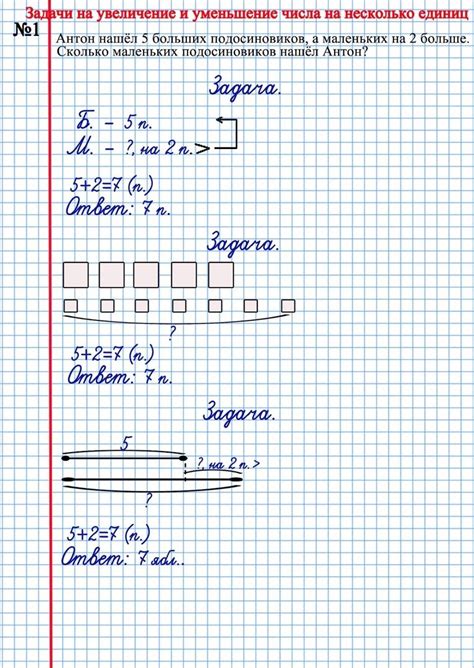 Задачи на увеличение и уменьшение числа на несколько единиц
№1
Антон нашёл 5 больших подосиновиков, а маленьких на 2 больше.
Сколько маленьких подосиновиков нашёл Антон?
Задача.
Б. – 5 п.
М. – ?, на 2 п.>
5+2=7 (п.)
Ответ: 7 п.
Задача.
?
5+2=7 (п.)
Ответ: 7 п.
Задача.
5
?, на 2 п.>
?
5+2=7 (п.)
Ответ: 7 ябл..